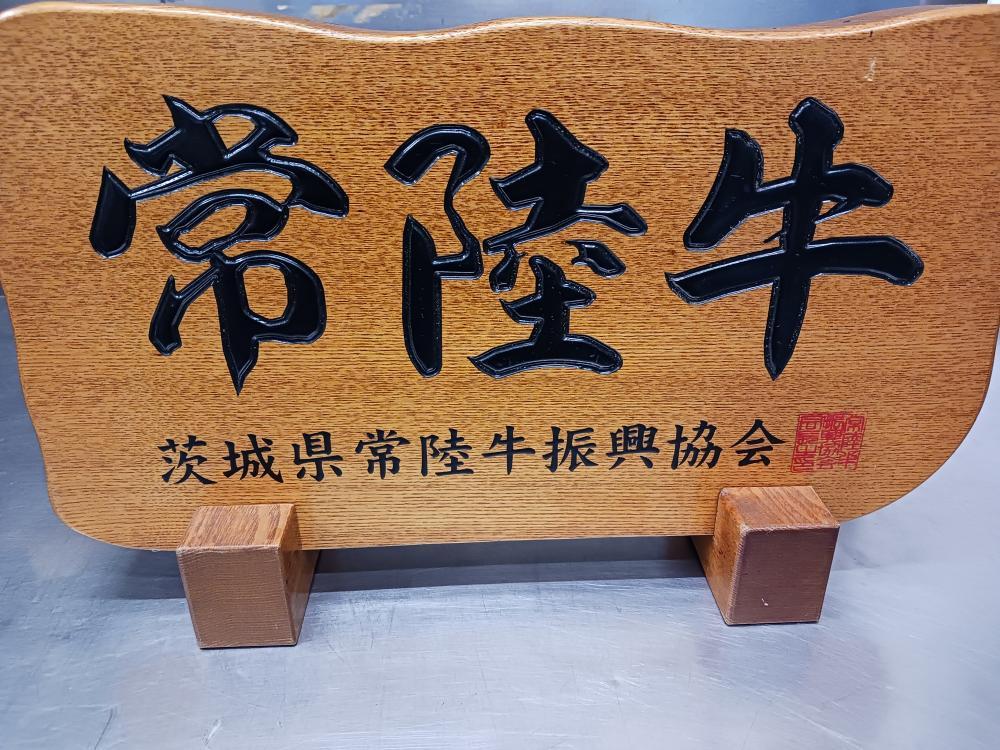 常陸牛
茨城県常陸牛振興協会